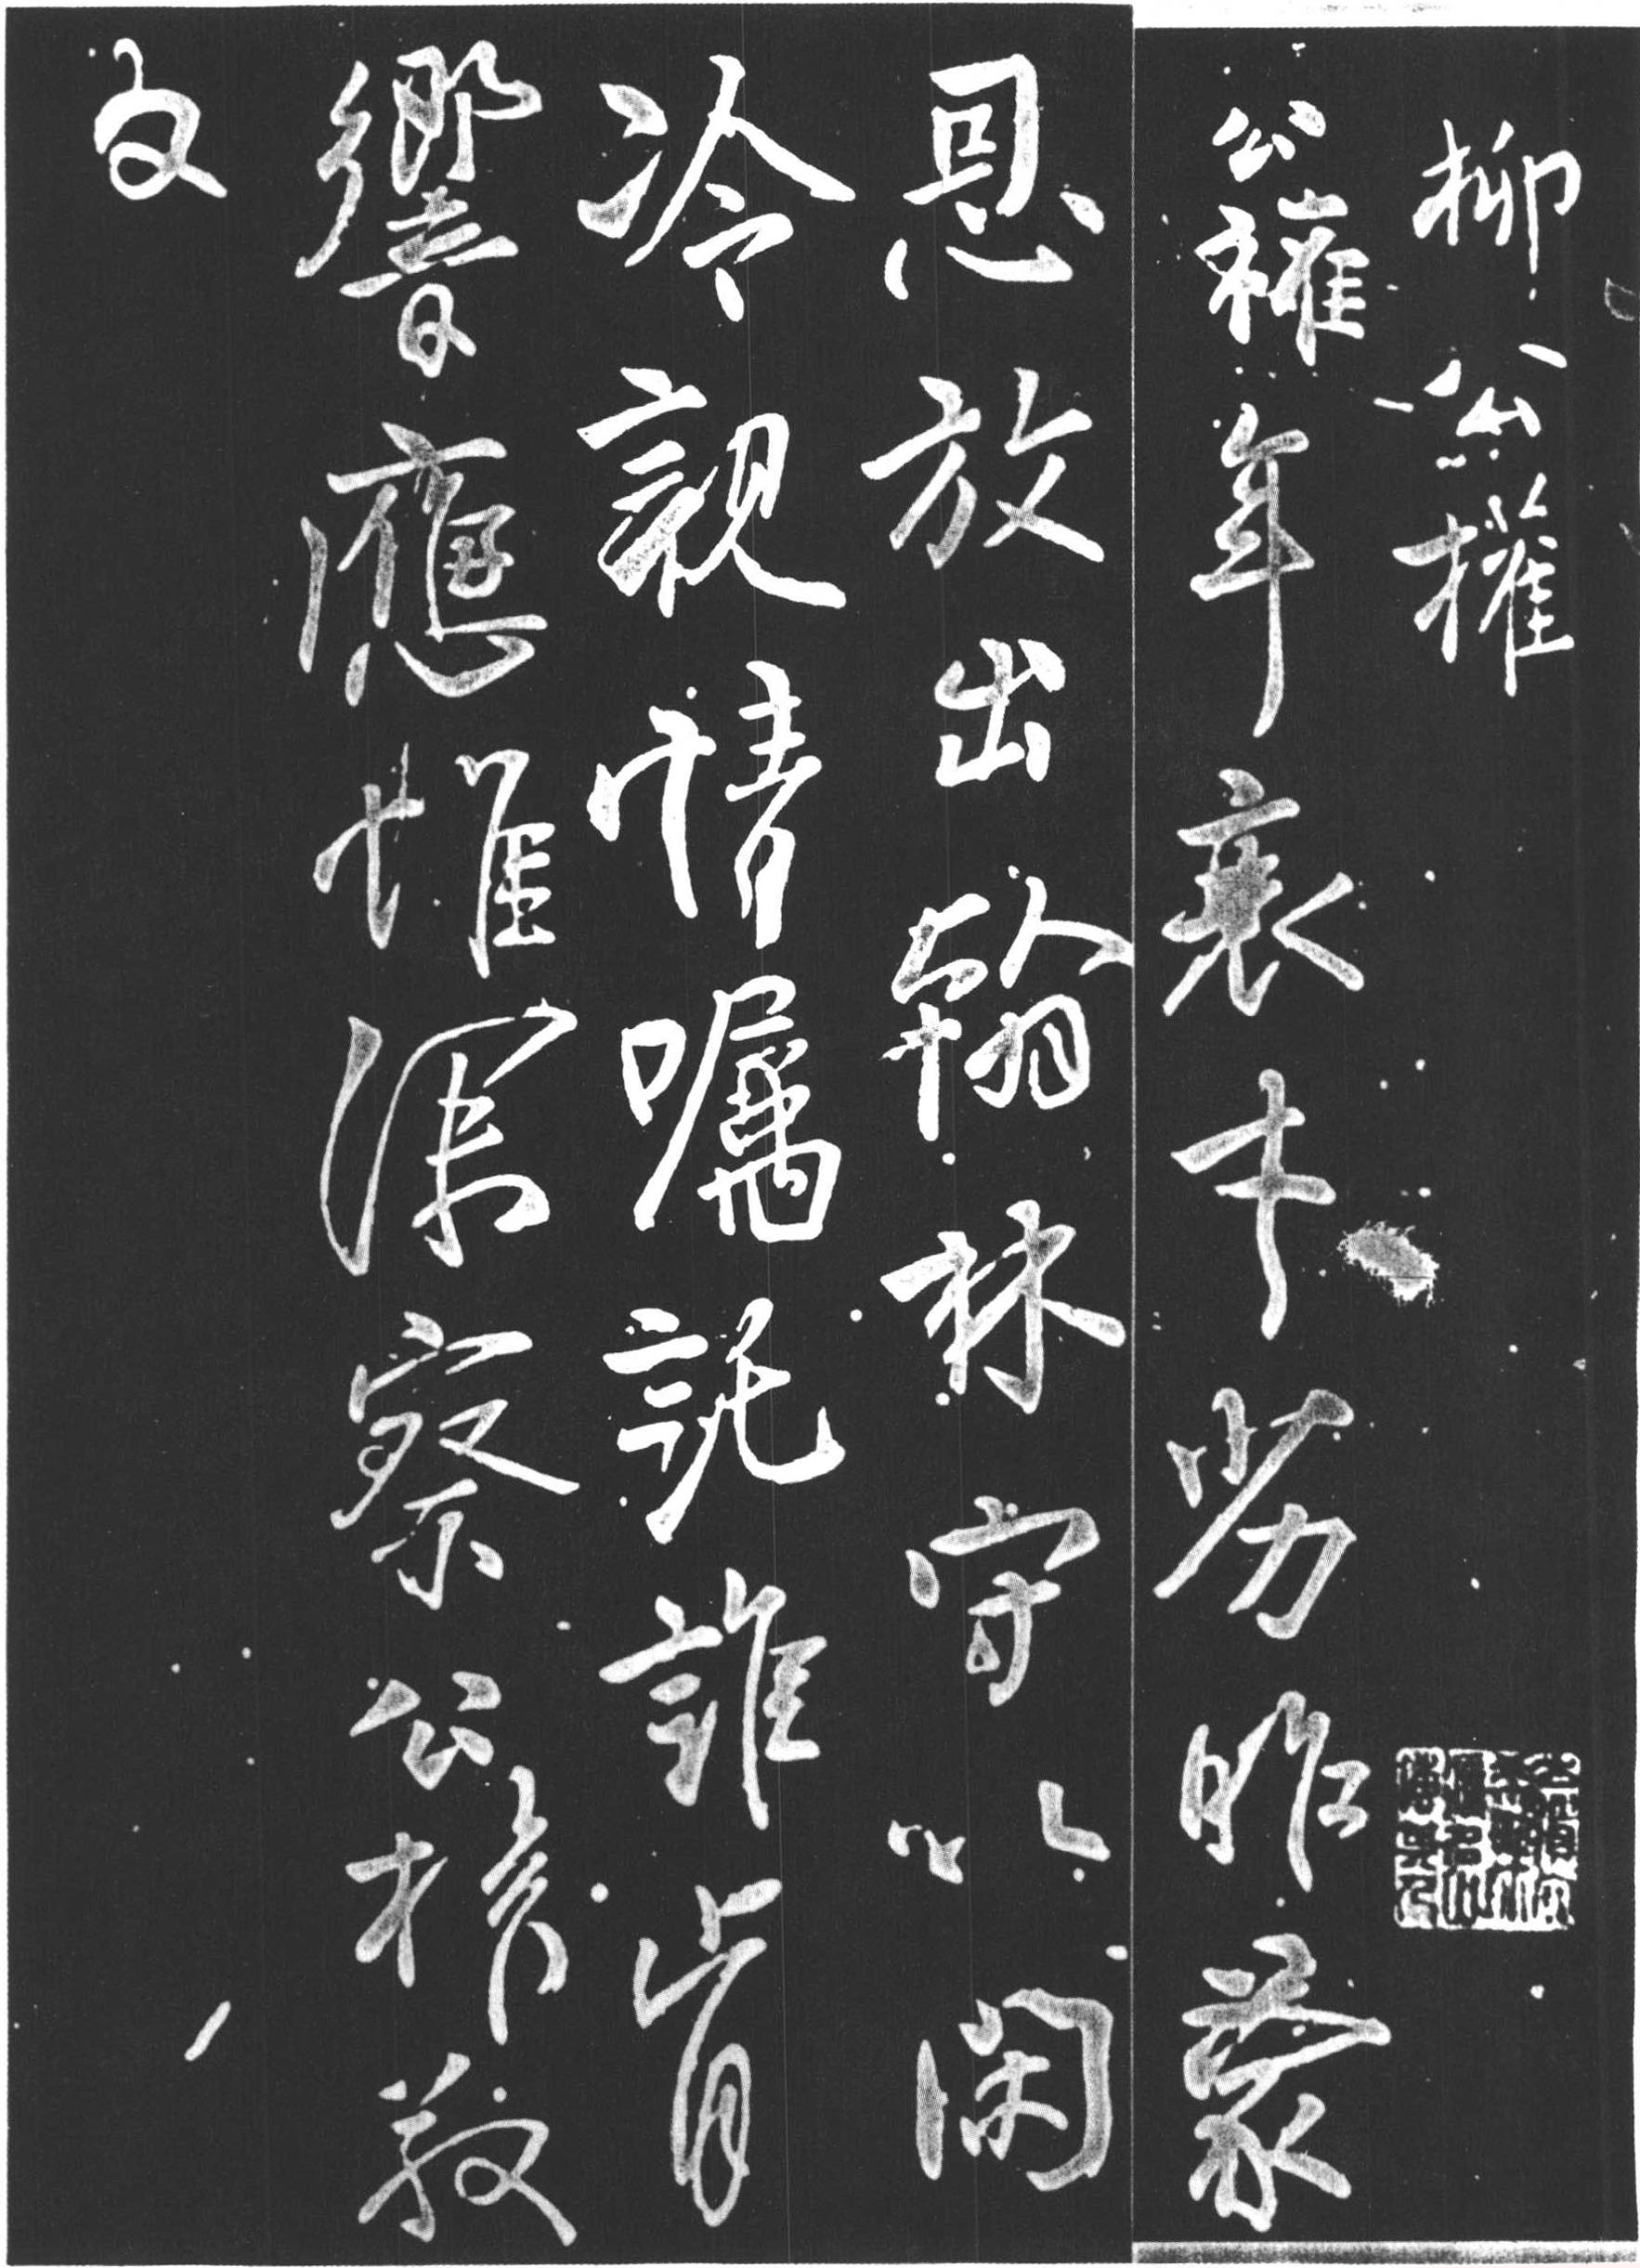 柳公權
公權年衰才劣昨蒙
恩放出翰林守以閑
冷親情囑託誰肯
響應惟深察公權敬
白